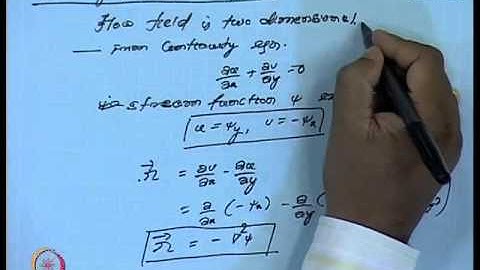 Flow field is two dimensional.
— From Continuity eqn.
∂u/∂x + ∂v/∂y = 0
⇒ stream function ψ
u = ψ_y, v = -ψ_x
Ω⃗ = ∂v/∂x - ∂u/∂y
= ∂/∂x (-ψ_x) - ∂/∂y (
Ω⃗ = - ∇²ψ